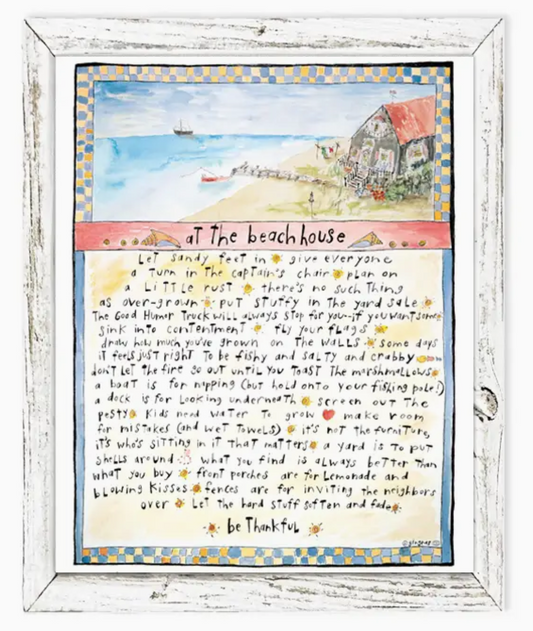 at the beach house
Let sandy feet in give everyone
a turn in the captain's chair plan on
a little rust there's no such thing
as over-grown put stuffy in the yard sale
The Good Humor Truck will always stop for you--if you want some
sink into contentment fly your flags
draw how much you've grown on the walls some days
it feels just right to be fishy and salty and crabby
don't let the fire go out until you toast the marshmallows
a boat is for napping (but hold onto your fishing pole!)
a dock is for looking underneath screen out the
pests kids need water to grow make room
for mistakes (and wet towels) it's not the furniture,
it's who's sitting in it that matters a yard is to put
shells around what you find is always better than
what you buy front porches are for lemonade and
blowing kisses fences are for inviting the neighbors
over Let the hard stuff soften and fade
be Thankful